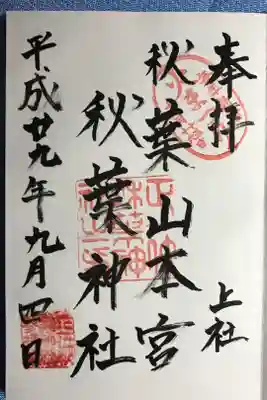 奉拝
上社
秋葉山本宮
秋葉神社
平成廿九年九月四日